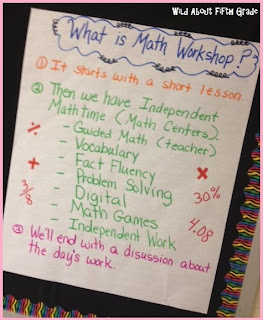 Wild About Fifth Grade
What is Math Workshop??
① It starts with a short lesson.
② Then we have Independent
Math time (Math Centers).
÷ - Guided Math (teacher)
- Vocabulary
+ - Fact Fluency ×
- Problem Solving
3/8 - Digital 30%
- Math Games
- Independent Work 4.08
③ We'll end with a disussion about
the day's work.